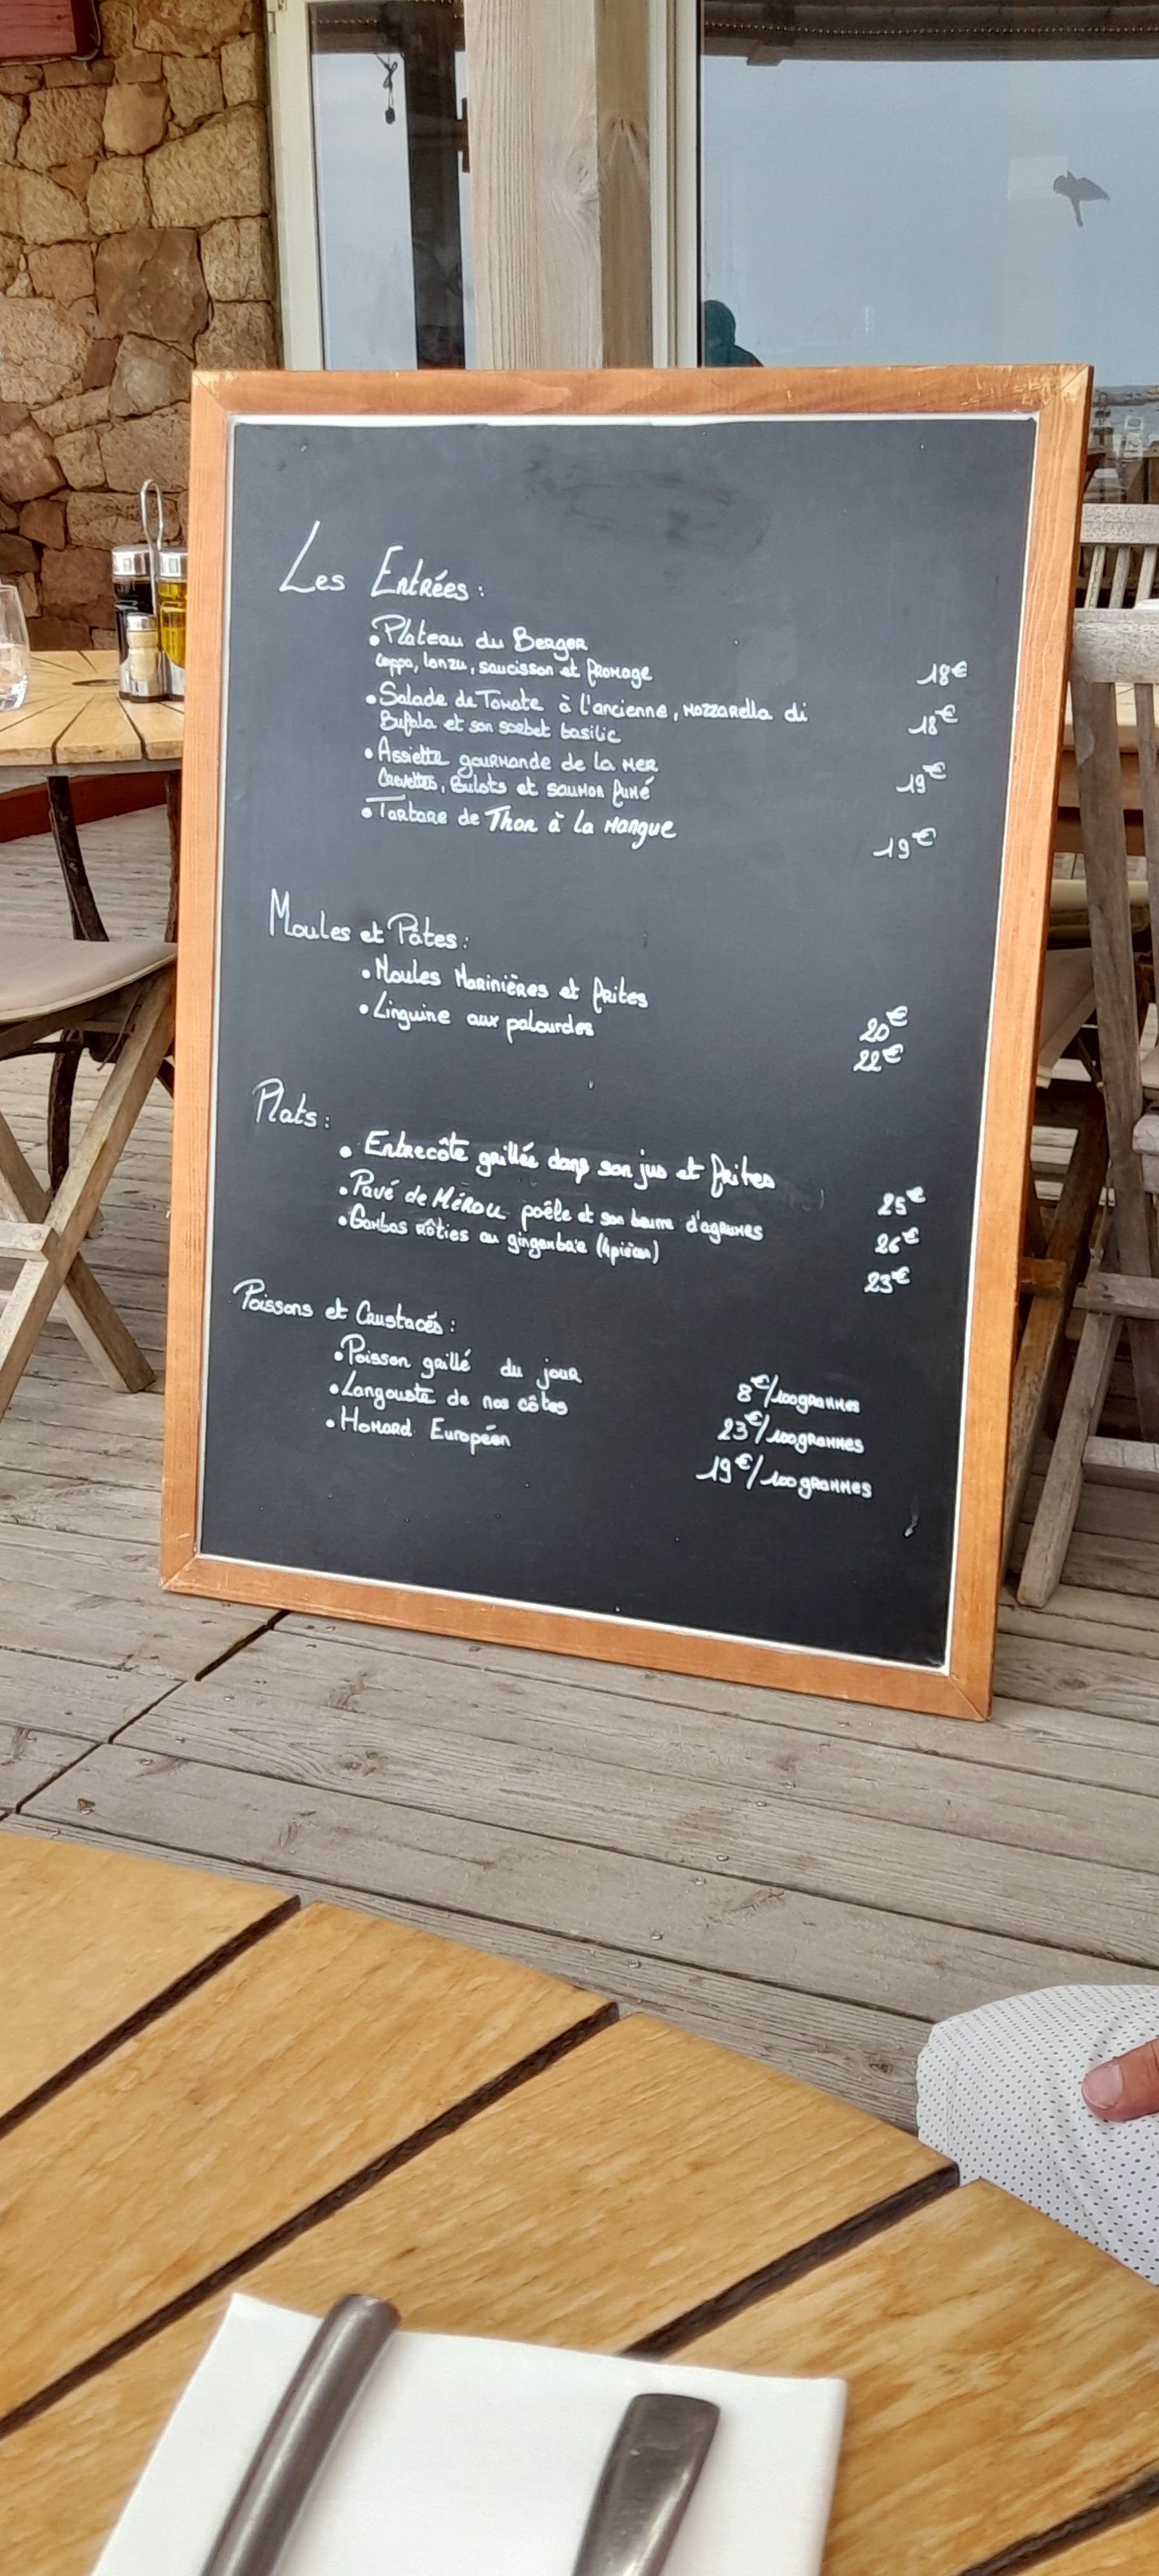 Les Entrées :
• Plateau du Berger
Coppa, lonzu, saucisson et fromage 18€
• Salade de Tomate à l'ancienne, mozzarella di 18€
Bufala et son sorbet basilic
• Assiette gourmande de la mer 19€
Crevettes, Bulots et saumon fumé
• Tartare de Thon à la mangue 19€
Moules et Pâtes :
• Moules Marinières et frites 20€
• Linguine aux palourdes 22€
Plats :
• Entrecôte grillée dans son jus et frites 25€
• Pavé de Mérou poêle et son beurre d'agrumes 26€
• Gambas rôties au gingembre (4 pièces) 23€
Poissons et Crustacés :
• Poisson grillé du jour 8€/100grammes
• Langouste de nos côtes 23€/100grammes
• Homard Européen 19€/100grammes